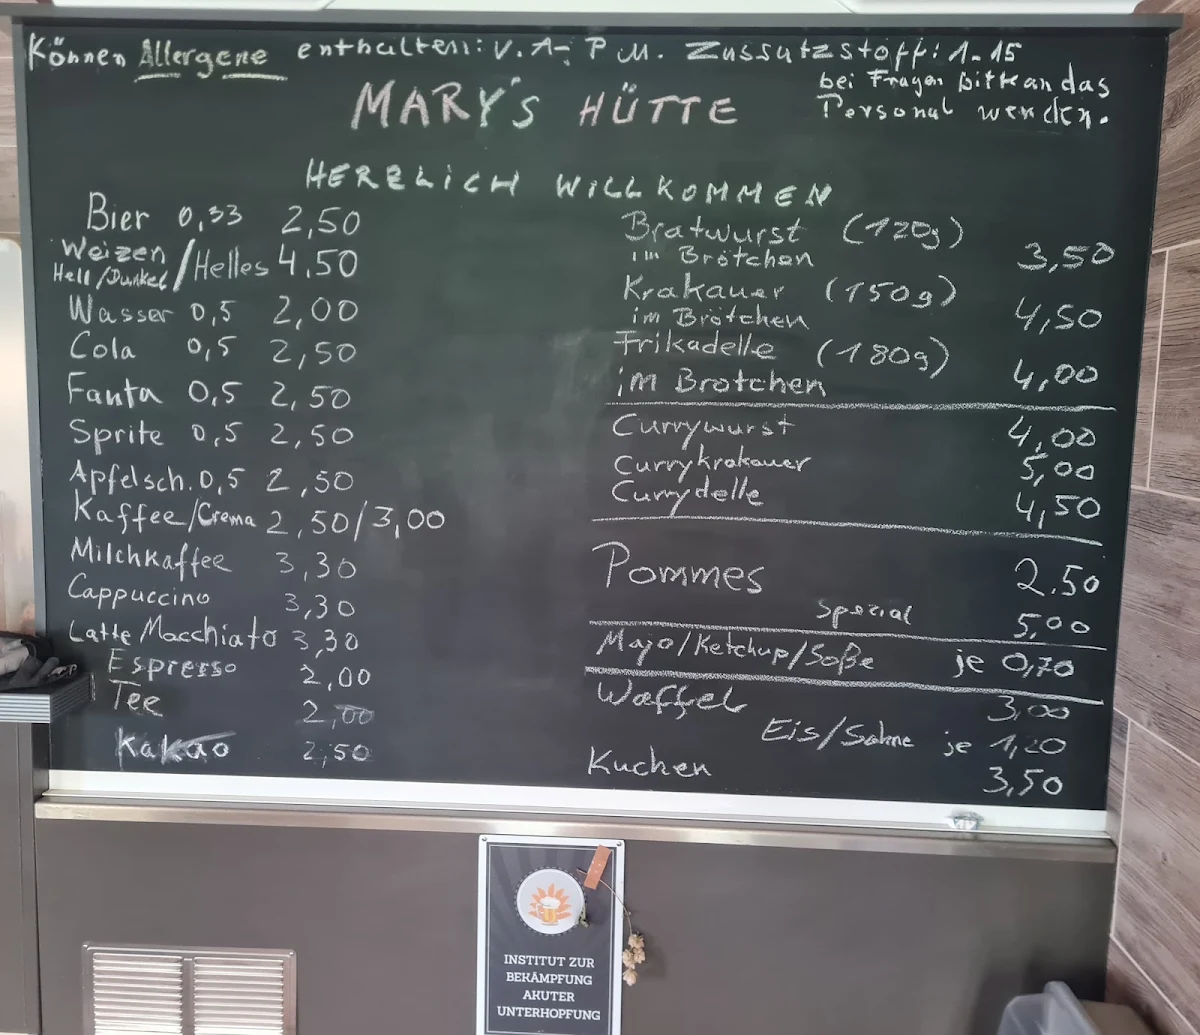 Können Allergene enthalten: v. A-, P M. Zussutzstoff: 1-15
bei Fragen bitte an das
Personal wenden.
MARY'S HÜTTE
HERZLICH WILLKOMMEN
Bier 0,33 2,50
Weizen
Hell/Dunkel/Helles 4,50
Wasser 0,5 2,00
Cola 0,5 2,50
Fanta 0,5 2,50
Sprite 0,5 2,50
Apfelsch. 0,5 2,50
Kaffee/Crema 2,50/3,00
Milchkaffee 3,30
Cappuccino 3,30
Latte Macchiato 3,30
Espresso 2,00
Tee 2,00
Kakao 2,50
Bratwurst (120g)
im Brötchen 3,50
Krakauer (150g)
im Brötchen 4,50
Frikadelle (180g)
im Brötchen 4,00
Currywurst 4,00
Currykrakauer 5,00
Currydelle 4,50
Pommes 2,50
spezial 5,00
Majo/Ketchup/Soße je 0,70
Waffel 3,00
Eis/Sahne je 1,20
Kuchen 3,50
INSTITUT ZUR
BEKÄMPFUNG
AKUTER
UNTERHOPFUNG